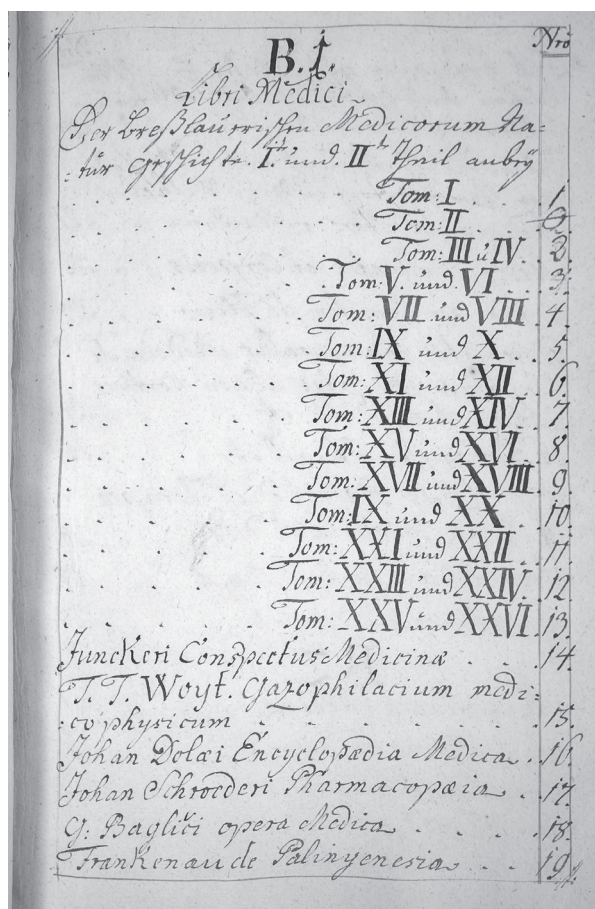 Nrō
B. I.
Libri Medici
Der Breßlauerischen Medicorum Na=
=tur Geschichte. I.r und II.r Theil anbey
Tom: I . . 1
Tom: II . .
Tom: III u IV. . 2.
Tom: V. und VI . 3.
Tom: VII und VIII . 4.
Tom: IX und X . 5.
Tom: XI und XII . 6.
Tom: XIII und XIV . 7.
Tom: XV und XVI . 8.
Tom: XVII und XVIII . 9.
Tom: IX und XX . 10.
Tom: XXI und XXII . 11.
Tom: XXIII und XXIV . 12.
Tom: XXV und XXVI . 13.
Junckeri Conspectus Medicinæ . . . 14.
T. T. Woyt. Gazophilacium medi=
=co physicum . . . . . . . 15.
Johan Dolæi Encyclopædia Medica . 16.
Johan Schroederi Pharmacopæia . . 17.
G: Baglici opera Medica . . . . 18.
Frankenau de Palinyenesia . . . 19.